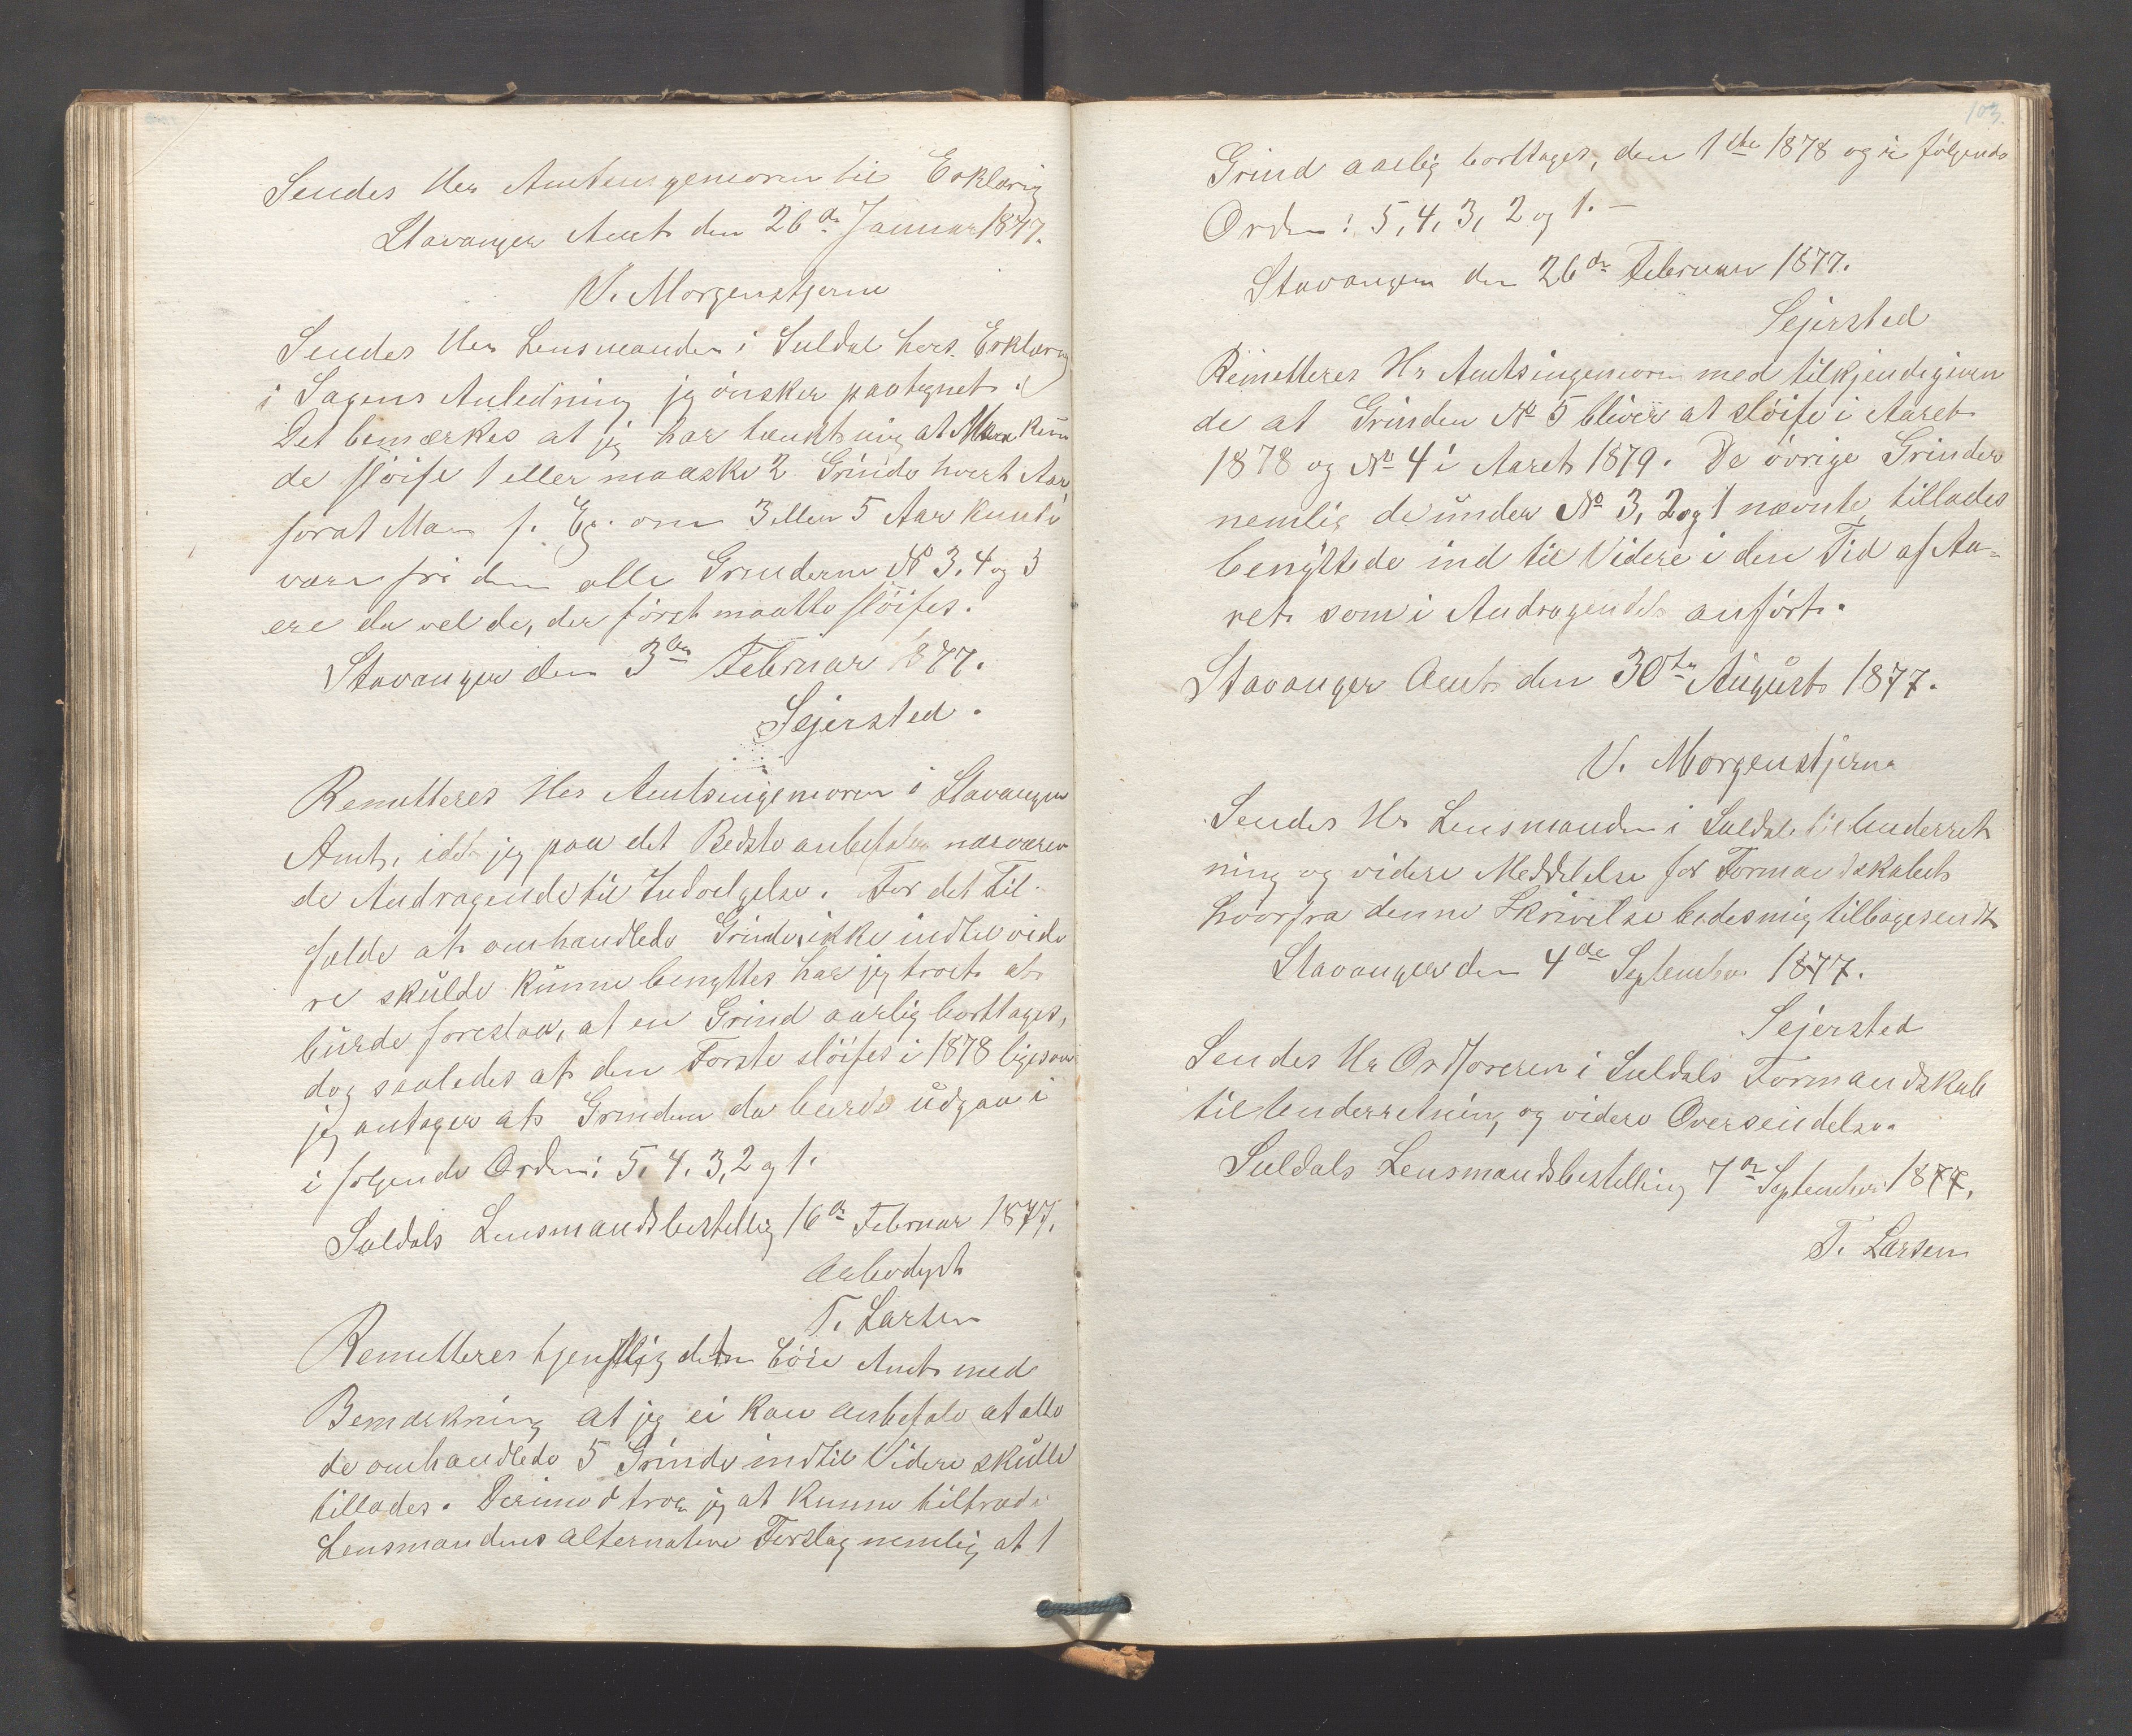 Sendes Her Amtsingeniøren til Erklæring
Stavanger Amt den 26de Januar 1877.
V. Morgenstjerne
Sendes Her Lensmanden i Suldal hvis Erklæring
i Sagens Anledning jeg ønsker paategnet.
Det bemærkes at jeg har tænkt mig at Man kun
de sløife 1 eller maaske 2 Grinde hvert Aar,
forat Man f. Ex. om 3 eller 5 Aar kunde
være fri dem alle Grinderne No 3. 4 og 5
ere da vel de, der først maatte sløifes.
Stavanger den 3die Februar 1877.
Sejersted.
Remitteres Her Amtsingeniøren i Stavanger
Amt, idet jeg paa det Bedste anbefaler nærværen
de Andragende til Indvilgelse. For det Til-
fælde at omhandlede Grinde ikke indtil vide
re skulde kunne benyttes har jeg troet at
burde foreslaa, at en Grind aarlig borttages,
dog saaledes at den Første sløifes i 1878 ligesom
jeg antager at Grinden da burde udgaa i
i følgende Orden: 5, 4, 3, 2 og 1.
Suldals Lensmandsbestilling 16de Februar 1877.
Ærbødigst
T. Larsen
Remitteres tjenstlig det høie Amt med
Bemærkning at jeg ei kan anbefale at alle
de omhandlede 5 Grinde indtil Videre skulle
tillades. Derimod troer jeg at kunne tiltræde
Lensmandens alternative Forslag nemlig at 1
103.
Grind aarlig borttages, den 1ste 1878 og i følgende
Orden: 5, 4, 3, 2 og 1. —
Stavanger den 26de Februar 1877.
Sejersted
Remitteres Hr Amtsingeniøren med tilkjendegiven
de at Grinden No 5 bliver at sløife i Aaret
1878 og No 4 i Aaret 1879. De øvrige Grinder
nemlig de under No 3, 2 og 1 nævnte, tillades
benyttede ind til Videre i den Tid af Aa-
ret som i Andragendet anført.
Stavanger Amt den 30te August 1877.
V. Morgenstjerne
Sendes Hr Lensmanden i Suldal til Underret
ning og videre Meddelelse for Formandskabet
hvorfra denne Skrivelse bedes mig tilbagesendt
Stavanger den 4de September 1877.
Sejersted
Sendes Hr Ordføreren i Suldals Formandskab
til Underretning og videre Oversendelse.
Suldals Lensmandsbestilling 7de September 1877.
T. Larsen